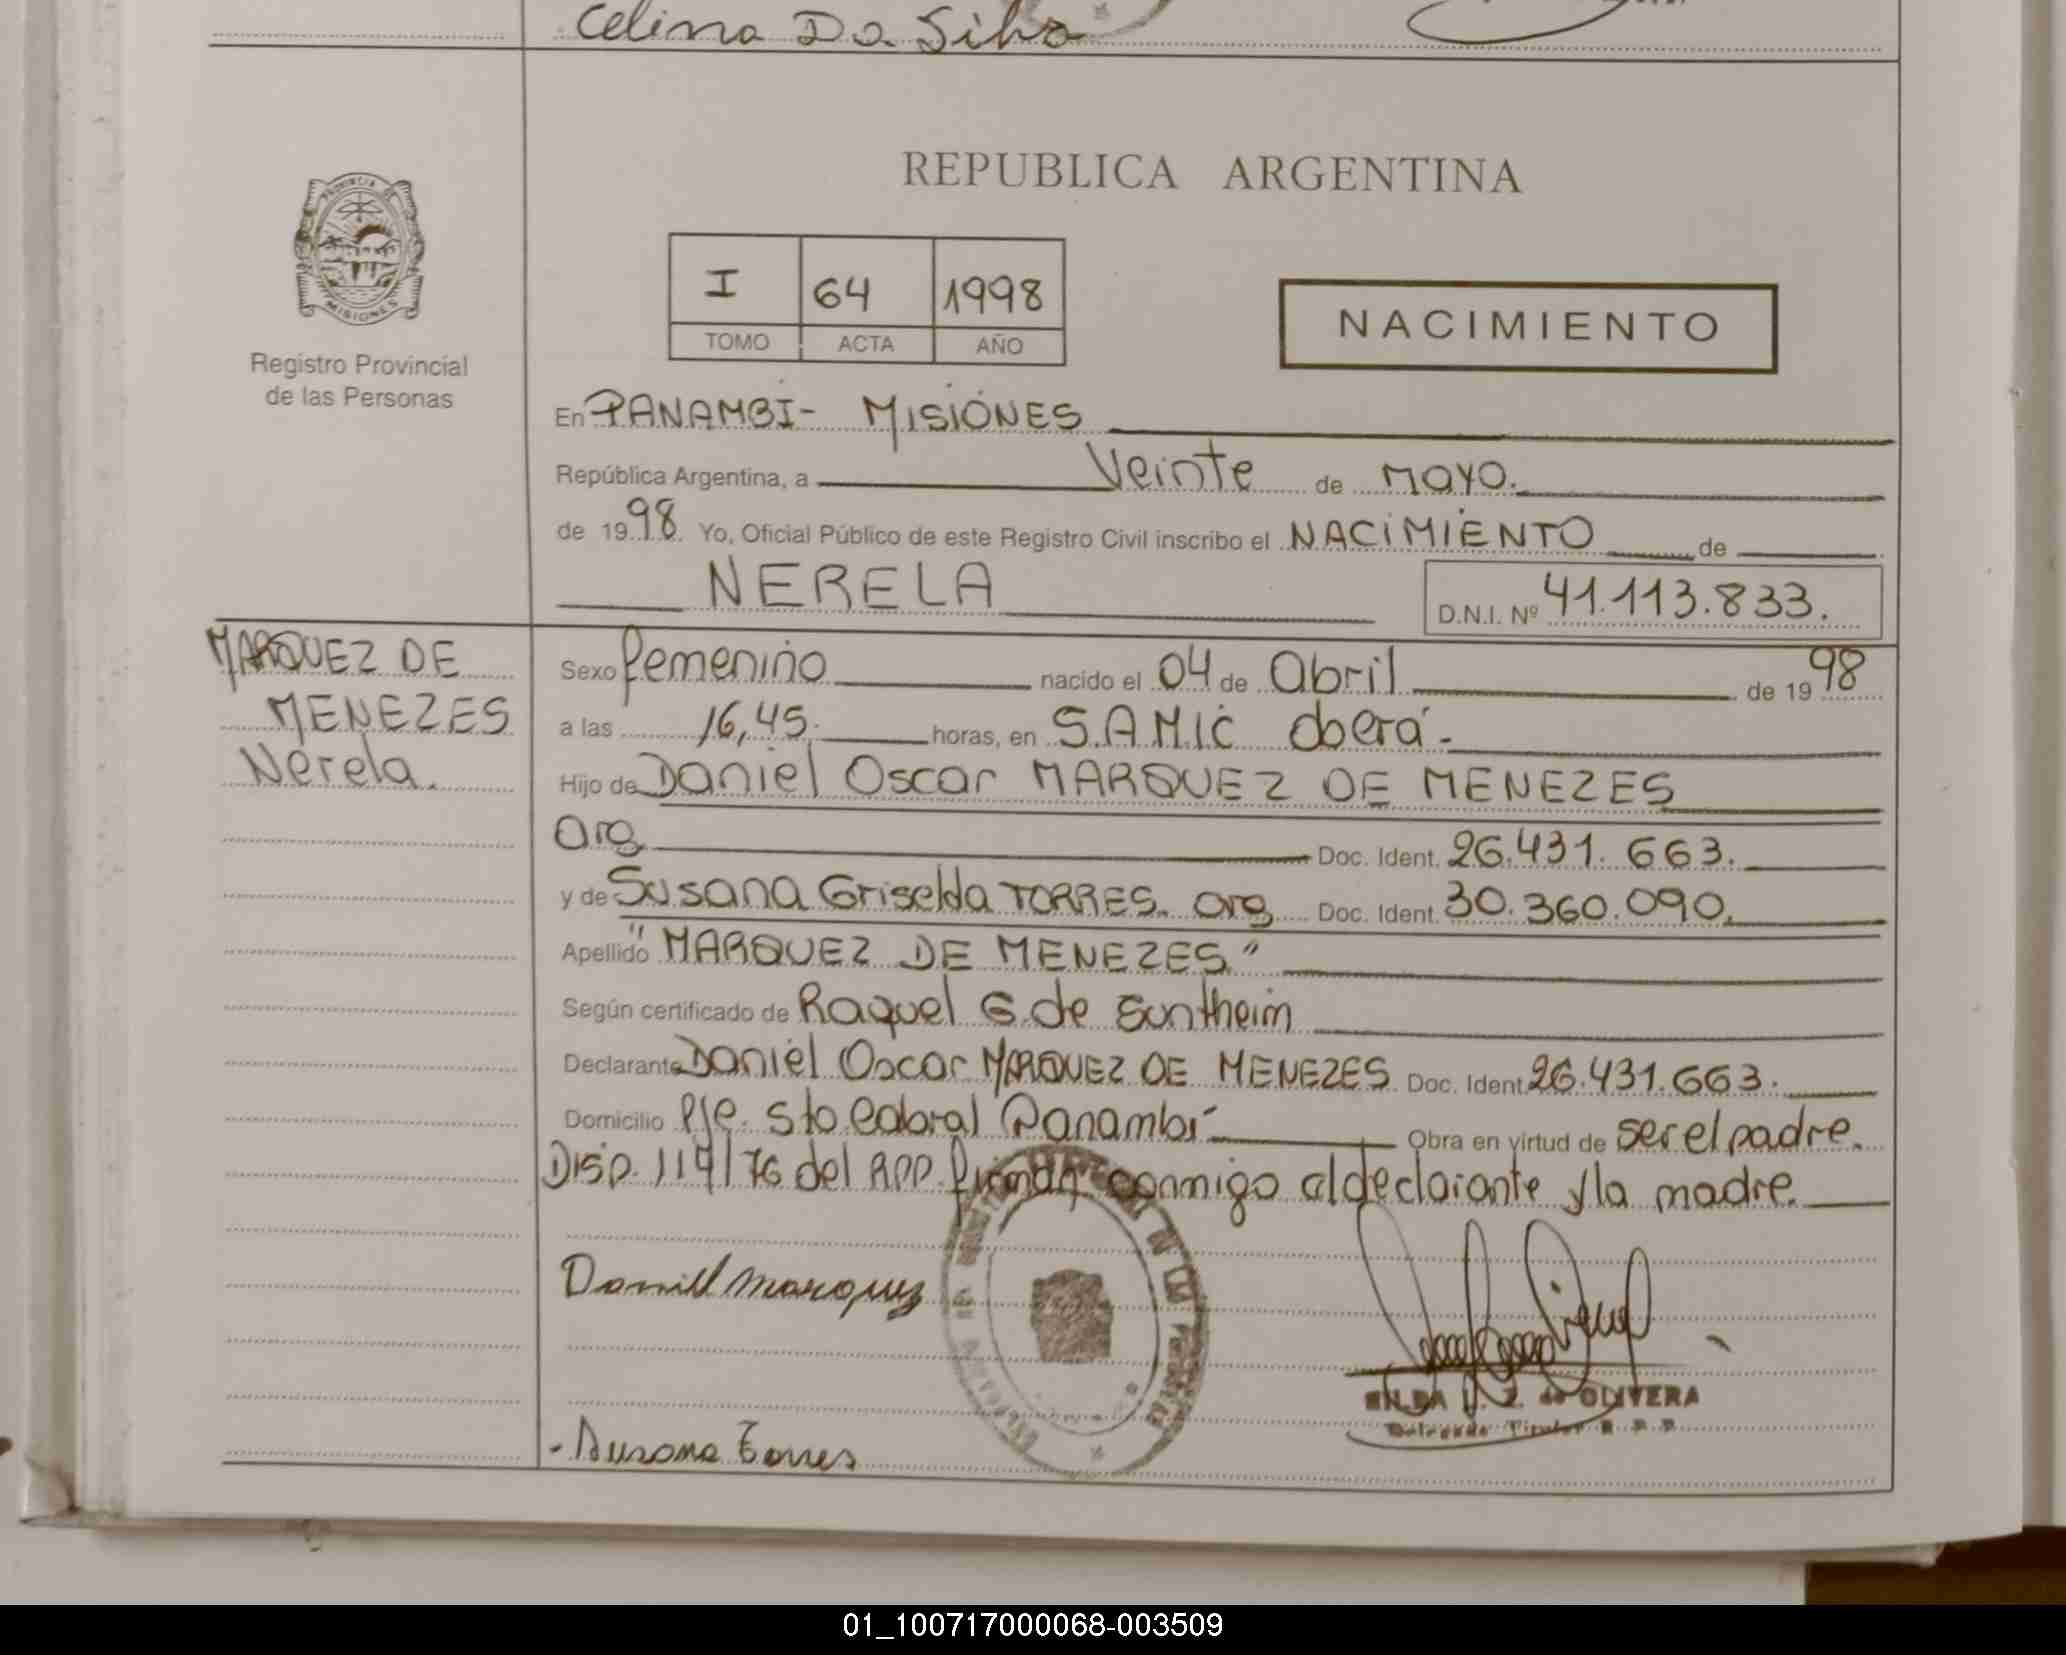 Celina Da Silva
PROVINCIA DE
MISIONES
Registro Provincial
de las Personas
REPUBLICA ARGENTINA
I 64 1998
TOMO ACTA AÑO
NACIMIENTO
En PANAMBI- MISIONES
República Argentina, a Veinte de Mayo.
de 1998. Yo, Oficial Público de este Registro Civil inscribo el NACIMIENTO de
NERELA
D.N.I. Nº 41.113.833.
MARQUEZ DE
MENEZES
Nerela.
Sexo femenino nacido el 04 de Abril de 1998
a las 16,45. horas, en S.A.M.I.C Oberá-
Hijo de Daniel Oscar MARQUEZ DE MENEZES
Arg Doc. Ident. 26.431.663.
y de Susana Griselda TORRES. Arg Doc. Ident. 30.360.090.
Apellido "MARQUEZ DE MENEZES"
Según certificado de Raquel G. de Suntheim
Declarante Daniel Oscar MARQUEZ DE MENEZES Doc. Ident. 26.431.663.
Domicilio Pje. Sto Cabral Panambí Obra en virtud de ser el padre.
Disp. 119/76 del RPP. firman conmigo el declarante y la madre.
Daniel Marquez
OLIVERA
- Susana Torres
01_100717000068-003509